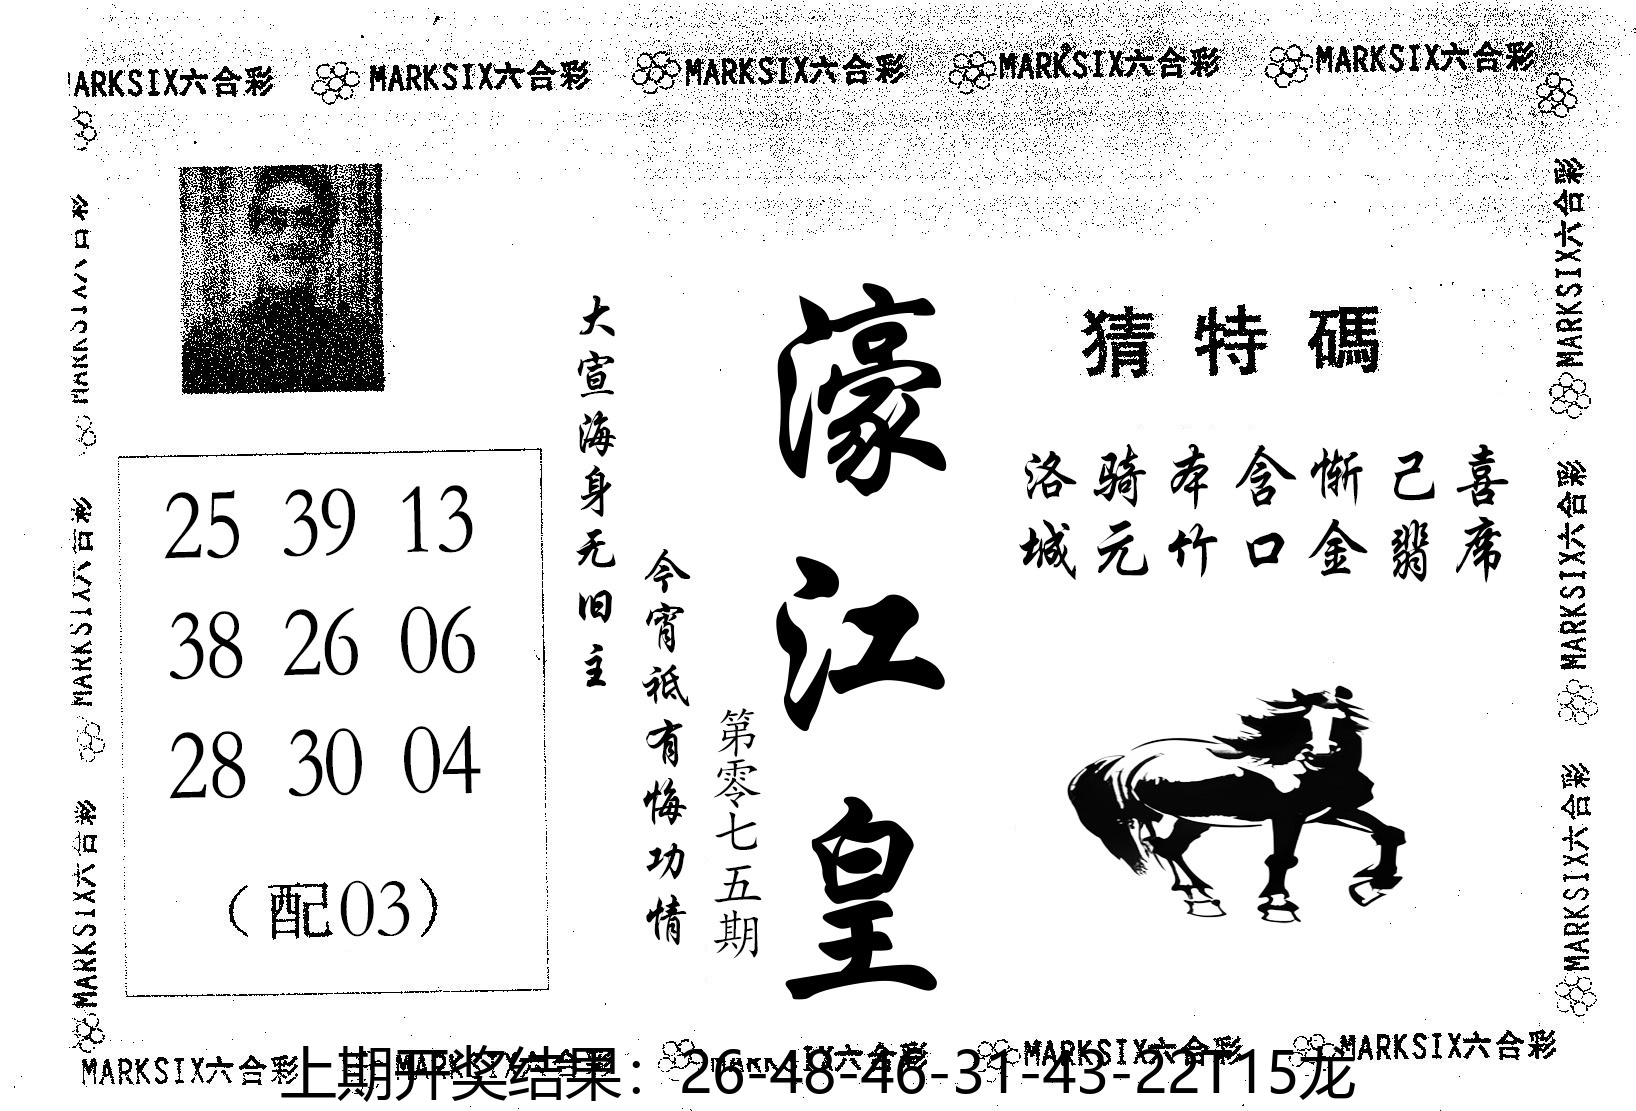 MARKSIX六合彩 MARKSIX六合彩 MARKSIX六合彩 MARKSIX六合彩 MARKSIX六合彩
MARKSIX六合彩 MARKSIX六合彩 MARKSIX六合彩
25 39 13
38 26 06
28 30 04
（配03）
大宣海身无旧主
今宵祗有悔功情
第零七五期
濠江皇
猜特碼
洛骑本含惭己喜
城元竹口金翡席
MARKSIX六合彩 MARKSIX六合彩 MARKSIX六合彩
MARKSIX六合彩 MARKSIX六合彩 MARKSIX六合彩 MARKSIX六合彩 MARKSIX六合彩
上期开奖结果：26-48-46-31-43-22T15龙